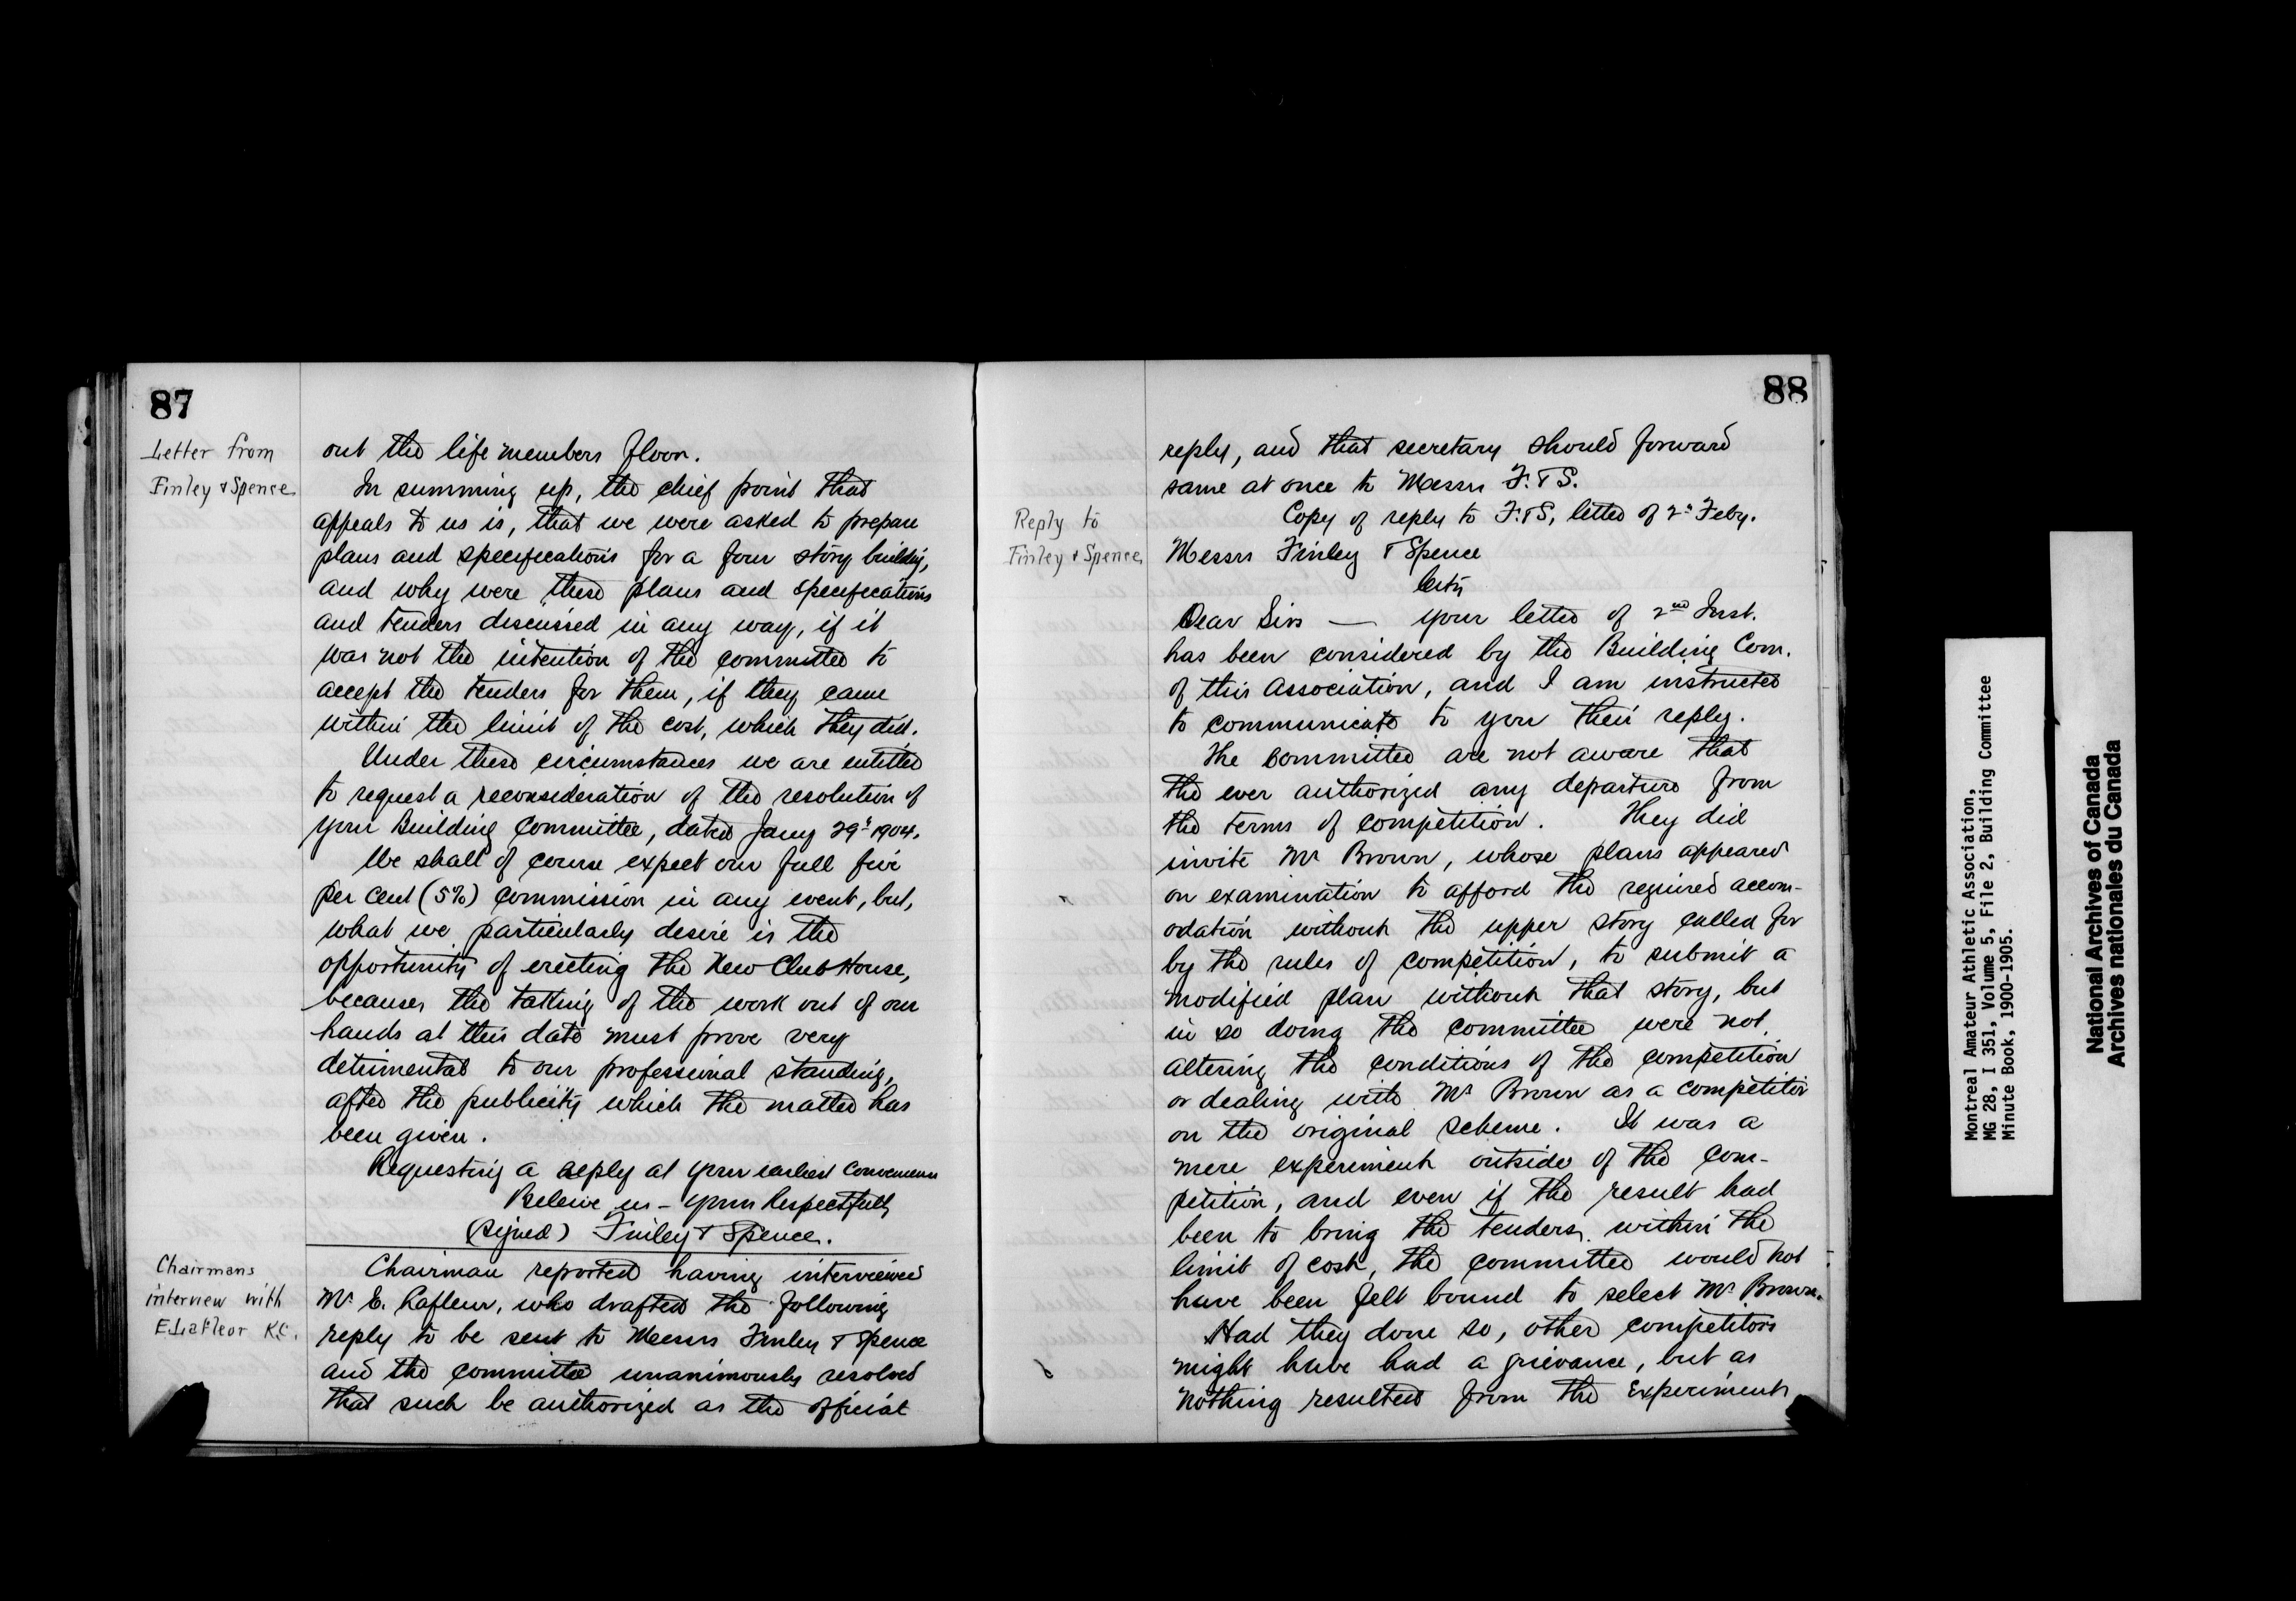 87
Letter from
Finley & Spence
out the life members floor.
In summing up, the chief point that
appeals to us is, that we were asked to prepare
plans and specifications for a four story building,
and why were these plans and specifications
and tenders discussed in any way, if it
was not the intention of the committee to
accept the tenders for them, if they came
within the limit of the cost, which they did.
Under these circumstances we are entitled
to request a reconsideration of the resolution of
your Building Committee, dated Jany 29th 1904.
We shall of course expect our full five
per cent (5%) commission in any event, but,
what we particularly desire is the
opportunity of erecting the New Club House,
because, the taking of the work out of our
hands at this date must prove very
detrimental to our professional standing,
after the publicity which the matter has
been given.
Requesting a reply at your earliest convenience
Beleive us - yours Respectfully
(signed) Finley & Spence.
Chairmans
interview with
E. Lafleor K.C.
Chairman reported having interviewed
Mr E. Lafleur, who drafted the following
reply to be sent to Messrs Finley & Spence
and the committee unanimously resolved
that such be authorized as the official
88
reply, and that secretary should forward
same at once to Messrs F. & S.
Reply to
Finley & Spence
Copy of reply to F. & S, letter of 2nd Feby.
Messrs Finley & Spence
City
Dear Sirs — your letter of 2nd Inst.
has been considered by the Building Com.
of this Association, and I am instructed
to communicate to you their reply.
The Committee are not aware that
the ever authorized any departure from
the terms of competition. They did
invite Mr Brown, whose plans appeared
on examination to afford the required accom-
odation without the upper story called for
by the rules of competition, to submit a
modified plan without that story, but
in so doing the committee were not
altering the conditions of the competition
or dealing with Mr Brown as a competitor
on the original scheme. It was a
mere experiment outside of the com-
petition, and even if the result had
been to bring the tenders within the
limit of cost, the committee would not
have been felt bound to select Mr Brown.
Had they done so, other competitors
might have had a grievance, but as
nothing resulted from the experiment
Montreal Amateur Athletic Association,
MG 28, I 351, Volume 5, File 2, Building Committee
Minute Book, 1900-1905.
National Archives of Canada
Archives nationales du Canada